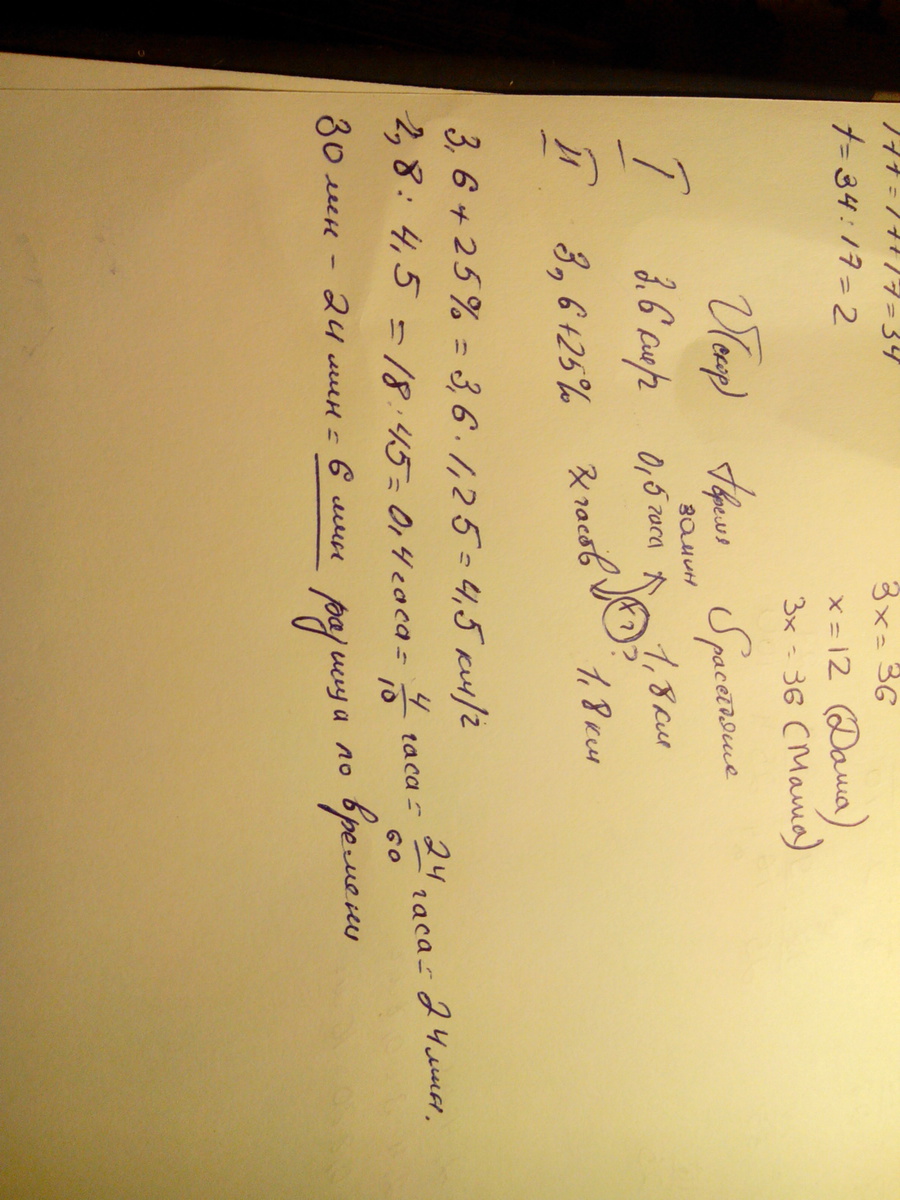 17t = 17+17=34
t=34:17=2
3x=36
x=12 (Даша)
3x=36 (Маша)
V(скор) t время S расстояние
I 3,6 км/ч 0,5 часа 1,8 км
30 мин
x?
?
II 3,6+25% x часов 1,8 км
3,6+25%=3,6·1,25=4,5 км/ч
1,8:4,5=18:45=0,4 часа=4/10 часа=24/60 часа=24 мин.
30 мин-24 мин=6 мин разница по времени